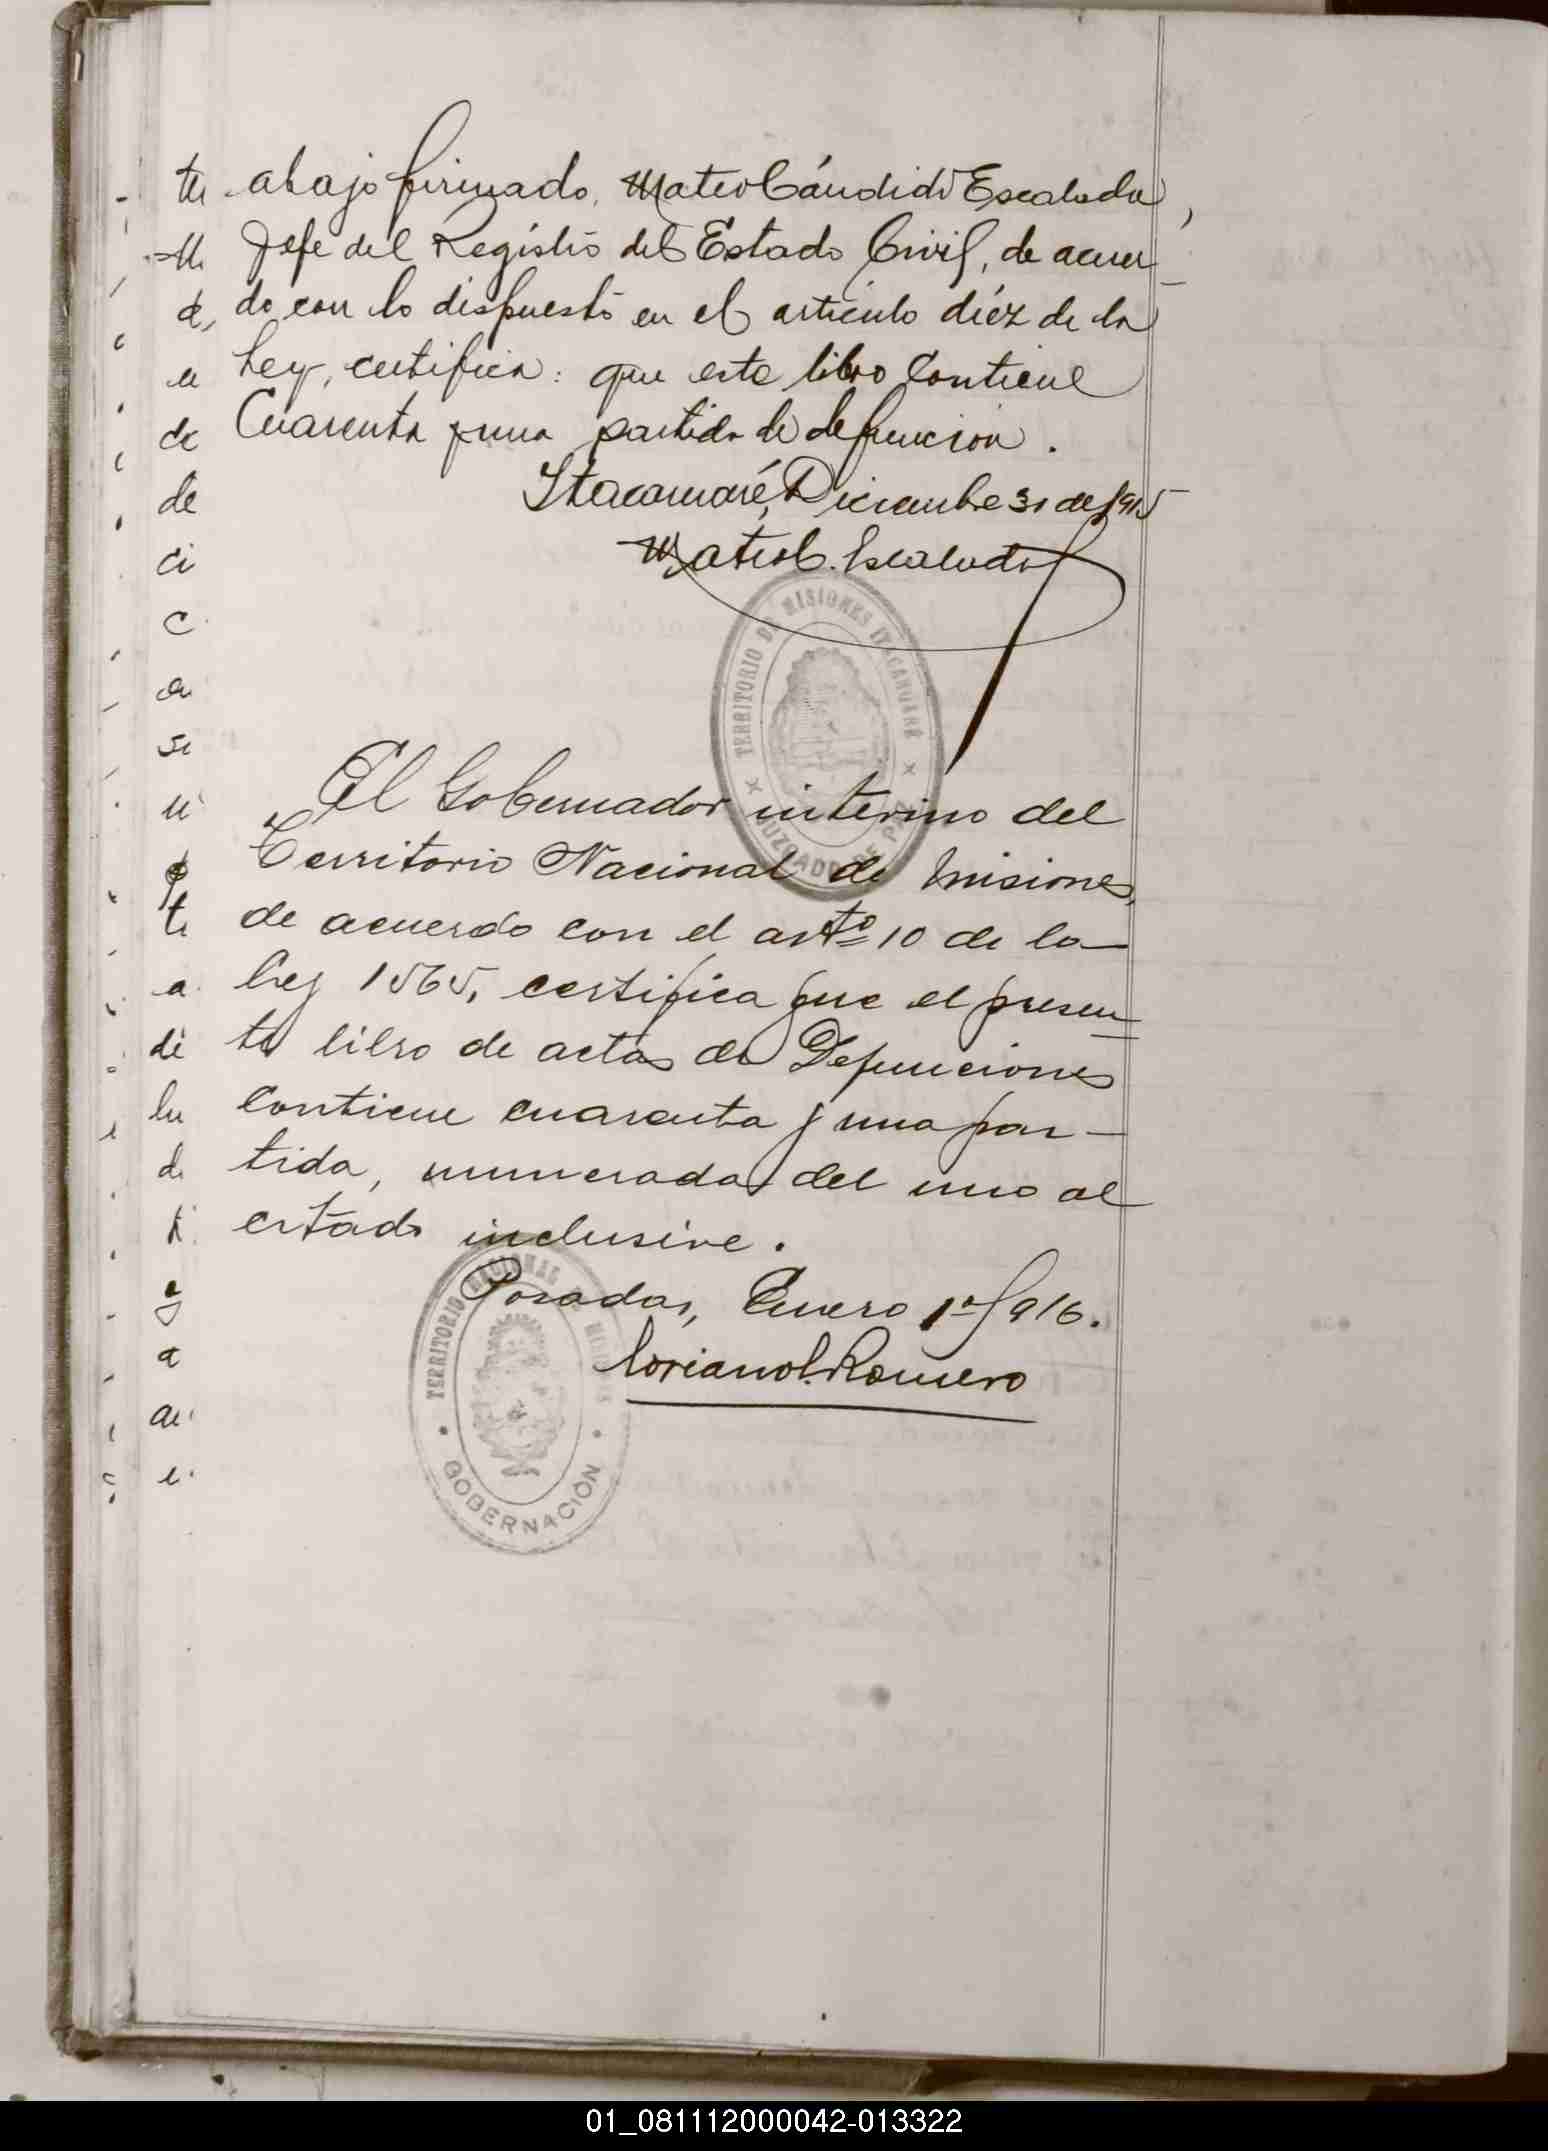 abajo firmado, Mateo Cándido Escalada,
Jefe del Registro del Estado Civil, de acuer-
do con lo dispuesto en el artículo diéz de la
Ley, certifica: que este libro contiene
Cuarenta y una partida de defunción.
Itacaruaré, Diciembre 31 de 1915
Mateo C. Escalada
TERRITORIO DE MISIONES ITACARUARÉ
JUZGADO DE PAZ
El Gobernador interino del
Territorio Nacional de Misiones,
de acuerdo con el arto 10 de la
Ley 1565, certifica que el presen-
te libro de actas de Defunciones
contiene cuarenta y una par-
tida, numerada del uno al
citado inclusive.
Posadas, Enero 1º/916.
TERRITORIO NACIONAL DE MISIONES
GOBERNACIÓN
Romero
01_081112000042-013322